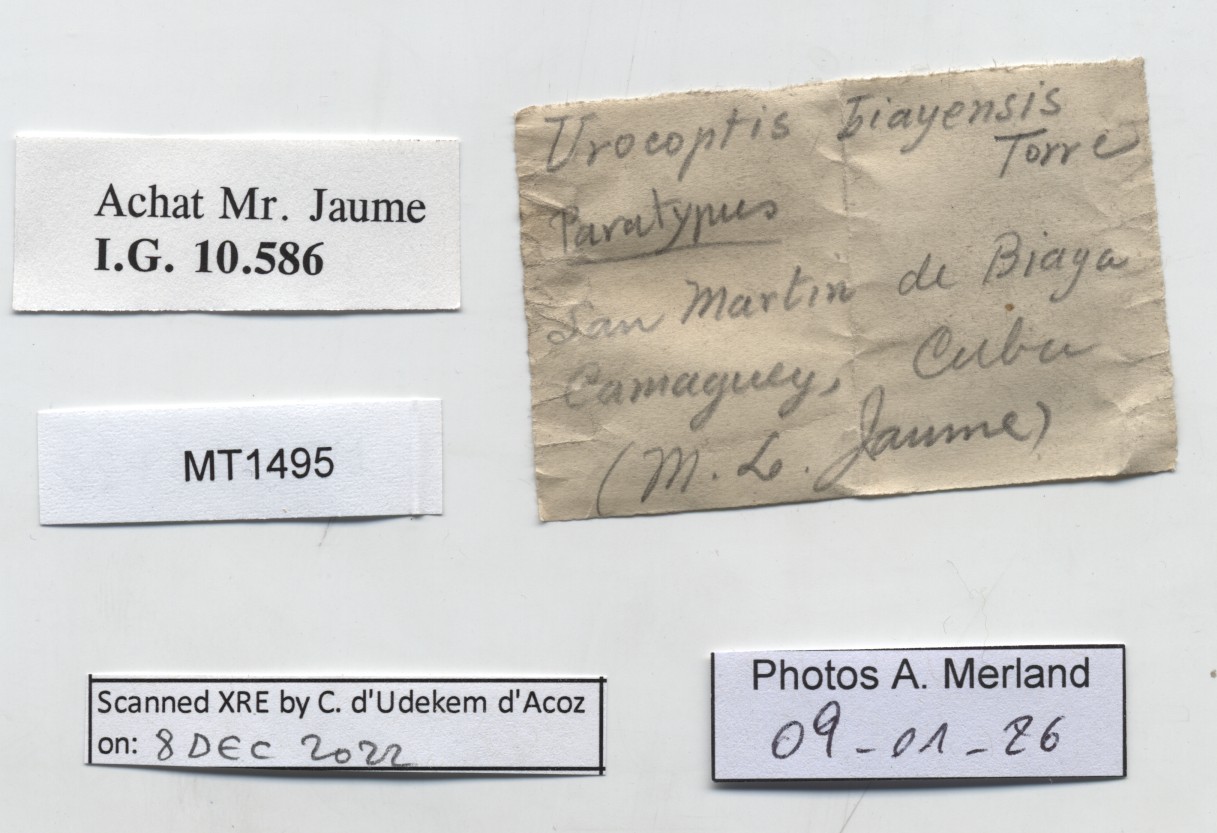 Achat Mr. Jaume
I.G. 10.586
MT1495
Urocoptis biayensis
Torre
Paratypus
San Martin de Biaya
Camaguey, Cuba
(M. L. Jaume)
Scanned XRE by C. d'Udekem d'Acoz
on: 8 DEC 2022
Photos A. Merland
09-01-26